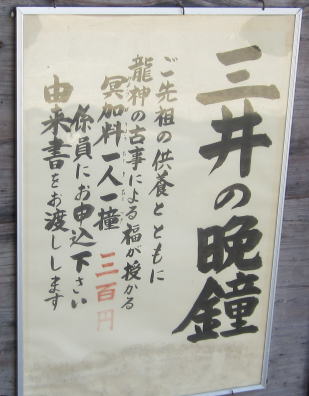 三井の晩鐘
ご先祖の供養とともに
龍神の古事による福が授かる
冥加料一人一撞 三百円
係員にお申込下さい
由来書をお渡しします